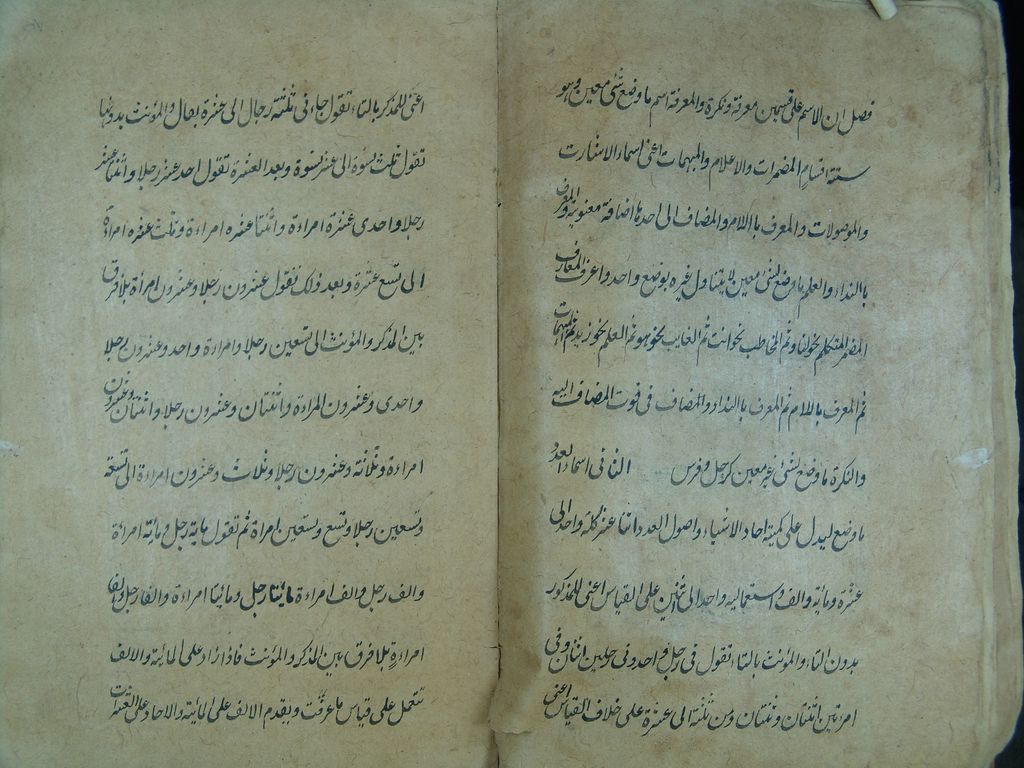 فصل ان الاسم على قسمين معرفة ونكرة والمعرفة اسم ما وضع لشئ معين وهو
ستة اقسام المضمرات والاعلام والمبهمات اعنى اسماء الاشارت
والموصولات والمعرف باللام والمضاف الى احدها اضافة معنوية والمعرف
باالنداء والعلم ما وضع لشئ معين لا يتناول غيره بوضع واحد واعرف المعارف
المضمر المتكلم نحو انا ونحن ثم المخاطب نحو انت ثم الغايب نحو هو ثم العلم نحو زيد ثم المبهمات
ثم المعرف باللام ثم المعرف باالنداء والمضاف فى قوت المضاف اليه
والنكرة ما وضع لشئ غير معين كرجل وفرس الثانى اسماء العدد
ما وضع ليدل على كمية احاد الاشياء واصول العدد اثنا عشر كلمة واحد الى
عشرة وماية والف واستعماليه واحد الى اثنين على القياس اعنى للمذكور
بدون التاء والمؤنث بالتاء تقول فى رجل واحد وفى رجلين اثنان وفى
امرءتين اثنتان وثنتان ومن ثلثة الى عشرة على خلاف القياس اعنى
اعنى للمذكر بالتاء تقول جاءنى ثلثة رجال الى عشرة رجال والمؤنث بدونها
تقول ثلث نسوة الى عشر نسوة وبعد العشرة تقول احد عشر رجلا واثنا عشر
رجلا واحدى عشرة امراءة واثنتا عشره امراءة وثلث عشره امراة
الى تسع عشرة وبعد ذلك تقول عشرون رجلا وعشرون امراة بلا فرق
بين المذكر والمؤنث الى تسعين رجلا وامراءة واحد وعشرون رجلا
واحدى وعشرون المراءة واثنتان وعشرون رجلا واثنتان وعشرون
امراءة وثلثة وعشرون رجلا وثلاث وعشرون امراءة الى تسعة
وتسعين رجلا وتسع وتسعين امراة ثم تقول ماية رجل ومائة امراءة
والف رجل والف امراءة مايتا رجل ومايتا امراءة والفا رجل والفا
امراءة بلا فرق بين المذكر والمؤنث فاذا زاد على المائية والالف
تستعمل على قياس ما عرفت ويقدم الالف على المائية والاحاد على العشرات